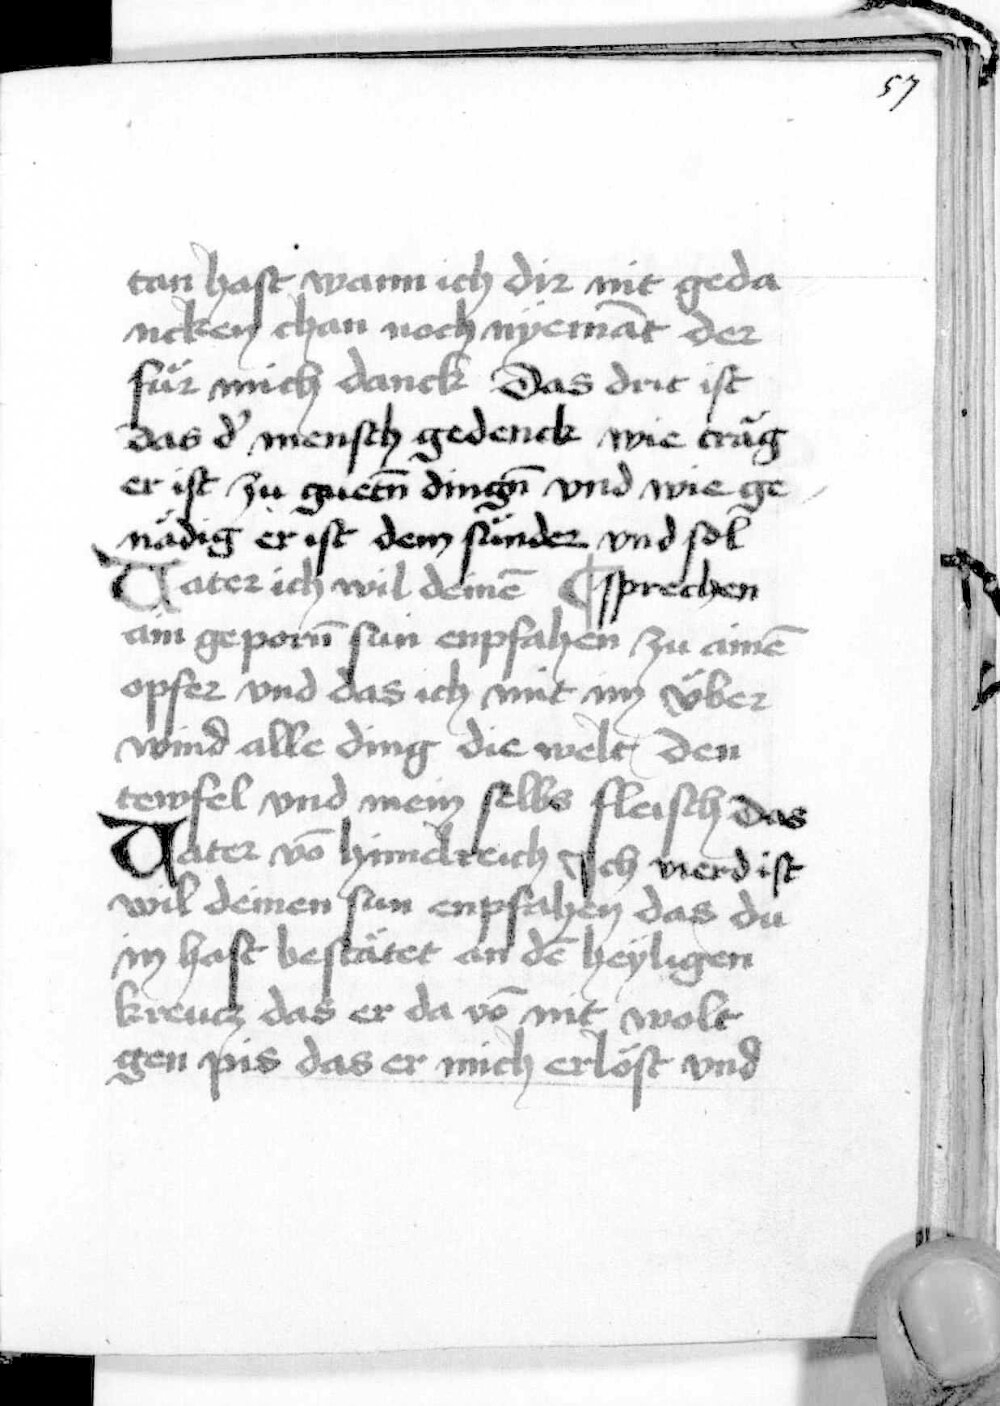 57
tan hast wann ich dir nit geda
ncken chan noch nÿemāt der
für mich danck Das drit ist
das d' mensch gedenck wie träg
er ist zu guetn̄ dingn̄ vnd wie ge
nädig er ist dem sünder vnd sol
Uater ich wil deinē ¶ sprechen
ain geporn̄ sun enpfahen zu ainē
opfer vnd das ich mit im über
wind alle ding die welt den
tewfel vnd mein selbs fleisch das
Uater vō himelreich Ich vierd ist
wil deinen sun enpfahen das du
in hast bestätet an dē heÿligen
kreucz das er da vō nit wolt
gen pis das er mich erlöst vnd